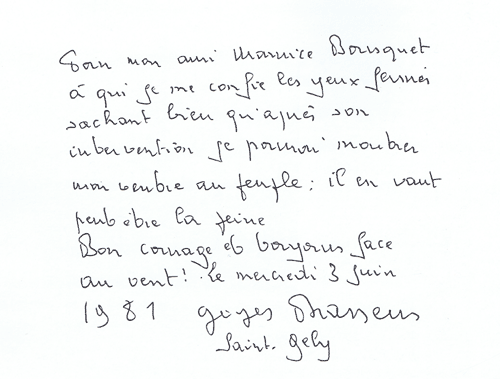 Pour mon ami Maurice Bousquet
à qui je me confie les yeux fermés
sachant bien qu'après son
intervention je pourrai montrer
mon ventre au peuple ; il en vaut
peut être la peine
Bon courage et toujours face
au vent ! Le mercredi 3 juin
1981 Georges Brassens
Saint. Gély